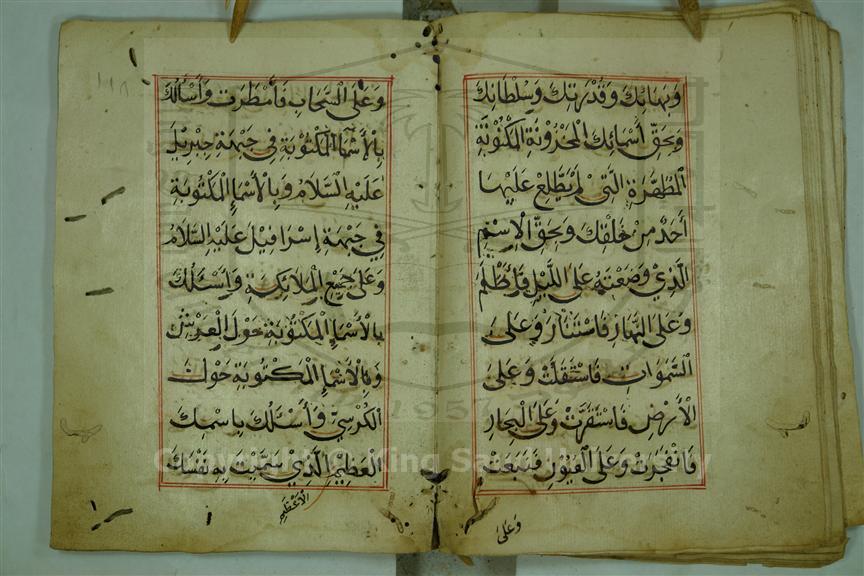 وَبَهَائِكَ وَقُدْرَتِكَ وَسُلْطَانِكَ
وَبِحَقِّ أَسْمَائِكَ الْمَخْزُونَةِ الْمَكْنُونَةِ
الْمُطَهَّرَةِ الَّتِي لَمْ يَطَّلِعْ عَلَيْهَا
أَحَدٌ مِنْ خَلْقِكَ وَبِحَقِّ الْاِسْمِ
الَّذِي وَضَعْتَهُ عَلَى اللَّيْلِ فَأَظْلَمَ
وَعَلَى النَّهَارِ فَاسْتَنَارَ وَعَلَى
السَّمٰوَاتِ فَاسْتَقَلَّتْ وَعَلَى
الْأَرْضِ فَاسْتَقَرَّتْ وَعَلَى الْبِحَارِ
فَانْفَجَرَتْ وَعَلَى الْعُيُونِ فَنَبَعَتْ
وَعَلَى
وَعَلَى السَّحَابِ فَأَمْطَرَتْ وَأَسْأَلُكَ
بِالْأَسْمَاءِ الْمَكْتُوبَةِ فِي جَبْهَةِ جِبْرِيلَ
عَلَيْهِ السَّلَامُ وَبِالْأَسْمَاءِ الْمَكْتُوبَةِ
فِي جَبْهَةِ إِسْرَافِيلَ عَلَيْهِ السَّلَامُ
وَعَلَى جَمِيعِ الْمَلَائِكَةِ وَأَسْئَلُكَ
بِالْأَسْمَاءِ الْمَكْتُوبَةِ حَوْلَ الْعَرْشِ
وَبِالْأَسْمَاءِ الْمَكْتُوبَةِ حَوْلَ
الْكُرْسِيِّ وَأَسْئَلُكَ بِاسْمِكَ
الْعَظِيمِ الَّذِي سَمَّيْتَ بِهِ نَفْسَكَ
الْأَعْظَمِ
1957